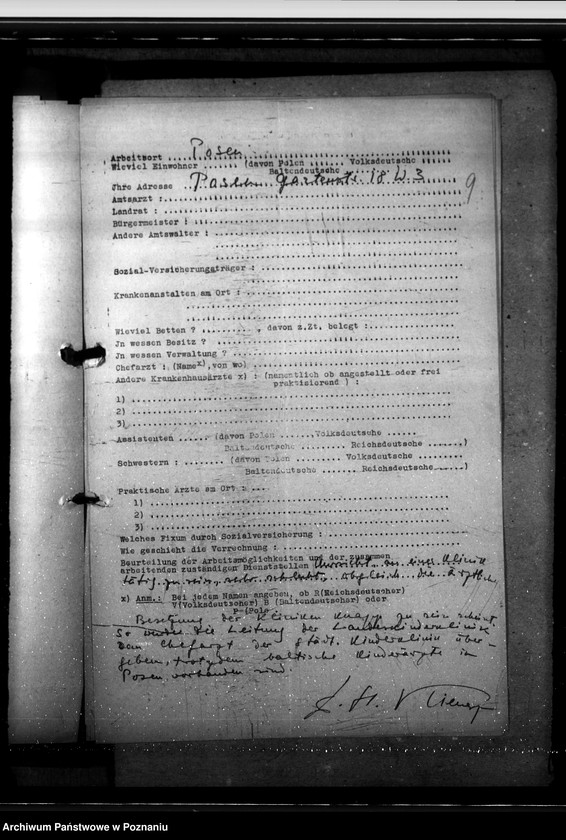 Arbeitsort ..... Posen ..............................
Wieviel Einwohner ....... (davon Polen ....... Volksdeutsche ......
Baltendeutsche ......
Jhre Adresse .. Posen Gartenstr. 18 W. 3
9
Amtsarzt : ..............................
Landrat : ..............................
Bürgermeister : ..............................
Andere Amtswalter : ..............................
Sozial-Versicherungsträger : ..............................
Krankenanstalten am Ort : ..............................
Wieviel Betten ? ........, davon z.Zt. belegt : ..............
Jn wessen Besitz ? ..............................
Jn wessen Verwaltung ? ..............................
Chefarzt : (Name x), von wo) ..............................
Andere Krankenhausärzte x) : (namentlich ob angestellt oder frei
praktizierend ) :
1) ..............................
2) ..............................
3) ..............................
Assistenten ...... (davon Polen ...... Volksdeutsche ......
Baltendeutsche ........ Reichsdeutsche ......)
Schwestern : ....... (davon Polen ........ Volksdeutsche ........
Baltendeutsche ...... Reichsdeutsche ......)
Praktische Ärzte am Ort :
1) ..............................
2) ..............................
3) ..............................
Welches Fixum durch Sozialversicherung : ....................
Wie geschieht die Verrechnung : ..............................
Beurteilung der Arbeitsmöglichkeiten und der zusammen
arbeitenden zuständigen Dienststellen an einer Klinik
tätig zu sein, obgleich die ärztl.
x) Anm.: Bei jedem Namen angeben, ob R(Reichsdeutscher)
V(Volksdeutscher) B (Baltendeutscher) oder
P=(Pole).
Besetzung der Kliniken knapp zu sein scheint.
So wurde die Leitung der Landeskinderklinik
dem Chefarzt der städt. Kinderklinik über-
geben, trotzdem baltische Kinderärzte in
Posen vorhanden sind.
Archiwum Państwowe w Poznaniu